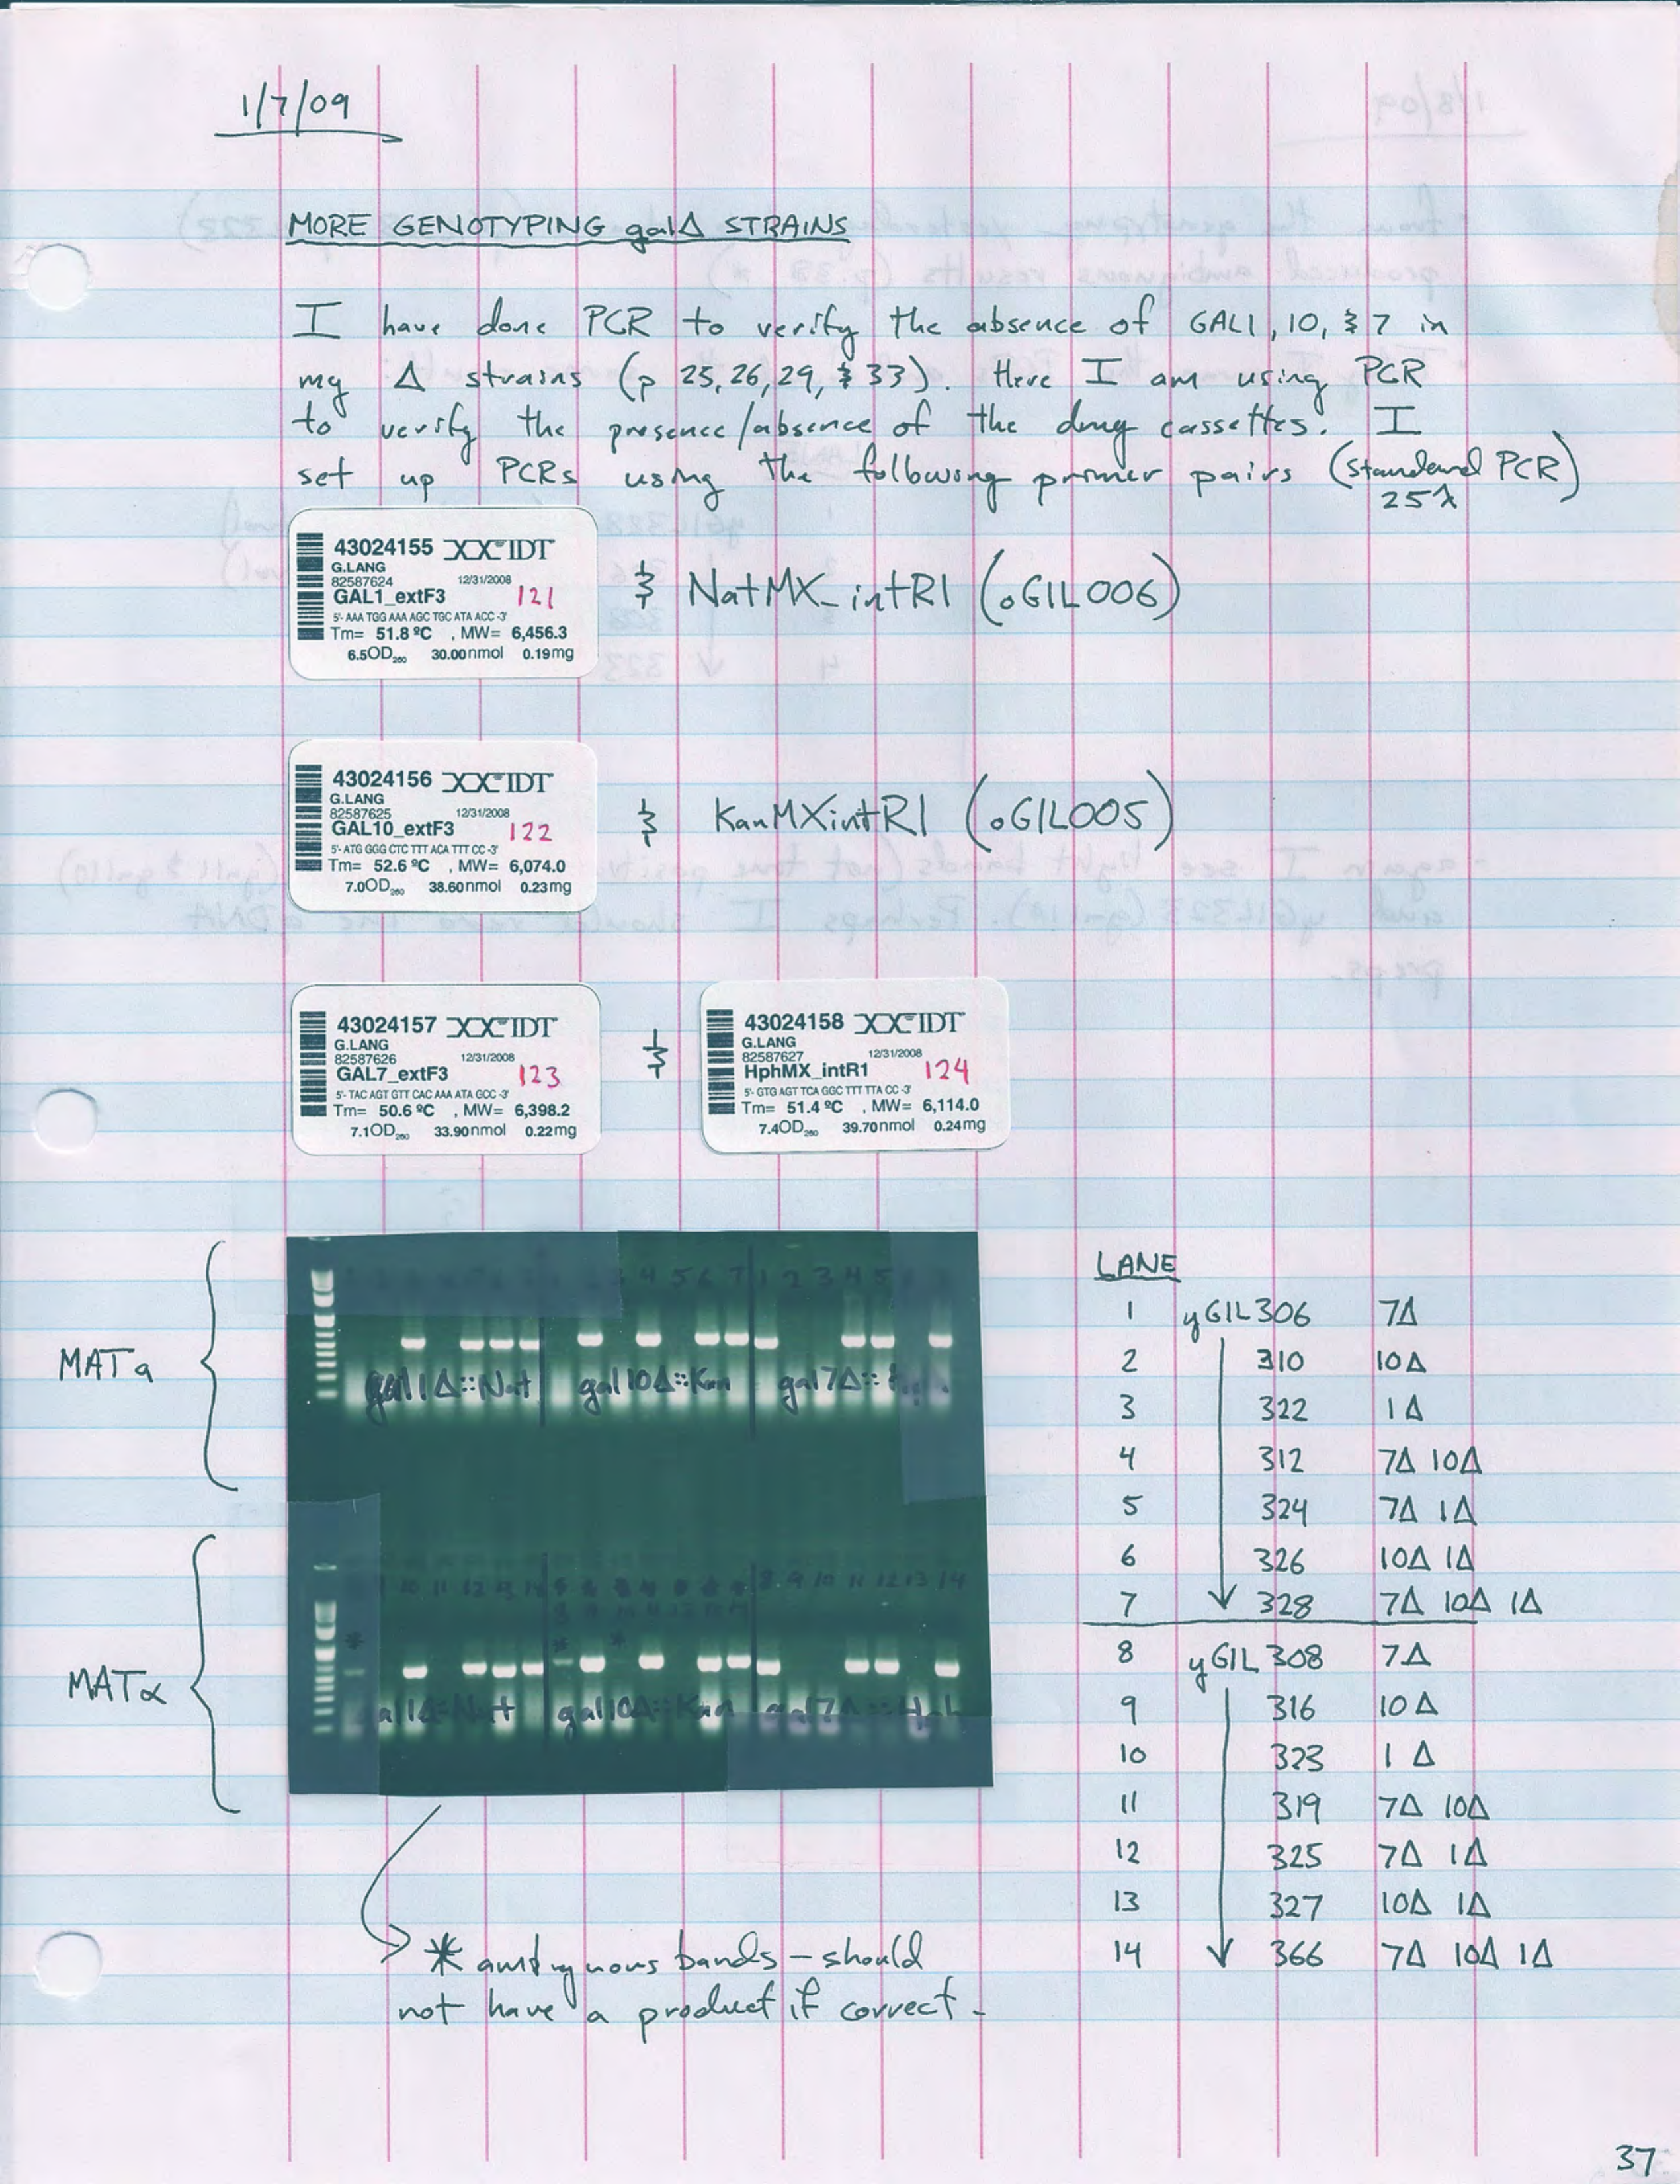 1/7/09
MORE GENOTYPING galΔ STRAINS
I have done PCR to verify the absence of GAL1, 10, & 7 in
my Δ strains (p 25, 26, 29, & 33). Here I am using PCR
to verify the presence/absence of the drug cassettes. I
set up PCRs using the following primer pairs (standard PCR)
25λ
43024155 IDT
G.LANG
82587624 12/31/2008
GAL1_extF3 121
5'- AAA TGG AAA AGC TGC ATA ACC -3'
Tm= 51.8 ºC , MW= 6,456.3
6.5OD260 30.00nmol 0.19mg
& NatMX_intR1 (oGIL006)
43024156 IDT
G.LANG
82587625 12/31/2008
GAL10_extF3 122
5'- ATG GGG CTC TTT ACA TTT CC -3'
Tm= 52.6 ºC , MW= 6,074.0
7.0OD260 38.60nmol 0.23mg
& KanMXintR1 (oGIL005)
43024157 IDT
G.LANG
82587626 12/31/2008
GAL7_extF3 123
5'- TAC AGT GTT CAC AAA ATA GCC -3'
Tm= 50.6 ºC , MW= 6,398.2
7.1OD260 33.90nmol 0.22mg
&
43024158 IDT
G.LANG
82587627 12/31/2008
HphMX_intR1 124
5'- GTG AGT TCA GGC TTT TTA CC -3'
Tm= 51.4 ºC , MW= 6,114.0
7.4OD260 39.70nmol 0.24mg
MATa
4 5 6 7 1 2 3 4 5
gal1Δ::Nat gal10Δ::Kan gal7Δ::
MATα
10 11 12 13 14 8 9 10 11 12 13 14
* * *
gal10Δ::Kan gal7Δ::
LANE
1 yGIL306 7Δ
2 310 10Δ
3 322 1Δ
4 312 7Δ 10Δ
5 324 7Δ 1Δ
6 326 10Δ 1Δ
7 328 7Δ 10Δ 1Δ
8 yGIL308 7Δ
9 316 10Δ
10 323 1Δ
11 319 7Δ 10Δ
12 325 7Δ 1Δ
13 327 10Δ 1Δ
14 366 7Δ 10Δ 1Δ
* ambiguous bands – should
not have a product if correct.
37